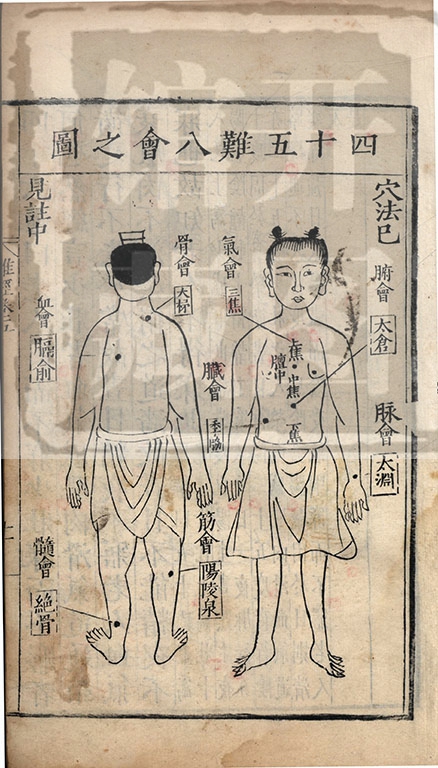 四十五難八會之圖
穴法已
見註中
腑會
太倉
脉會
太淵
氣會
三焦
上焦
膻中
中焦
下焦
骨會
大杼
臓會
季脇
筋會
陽陵泉
血會
膈俞
髓會
絶骨